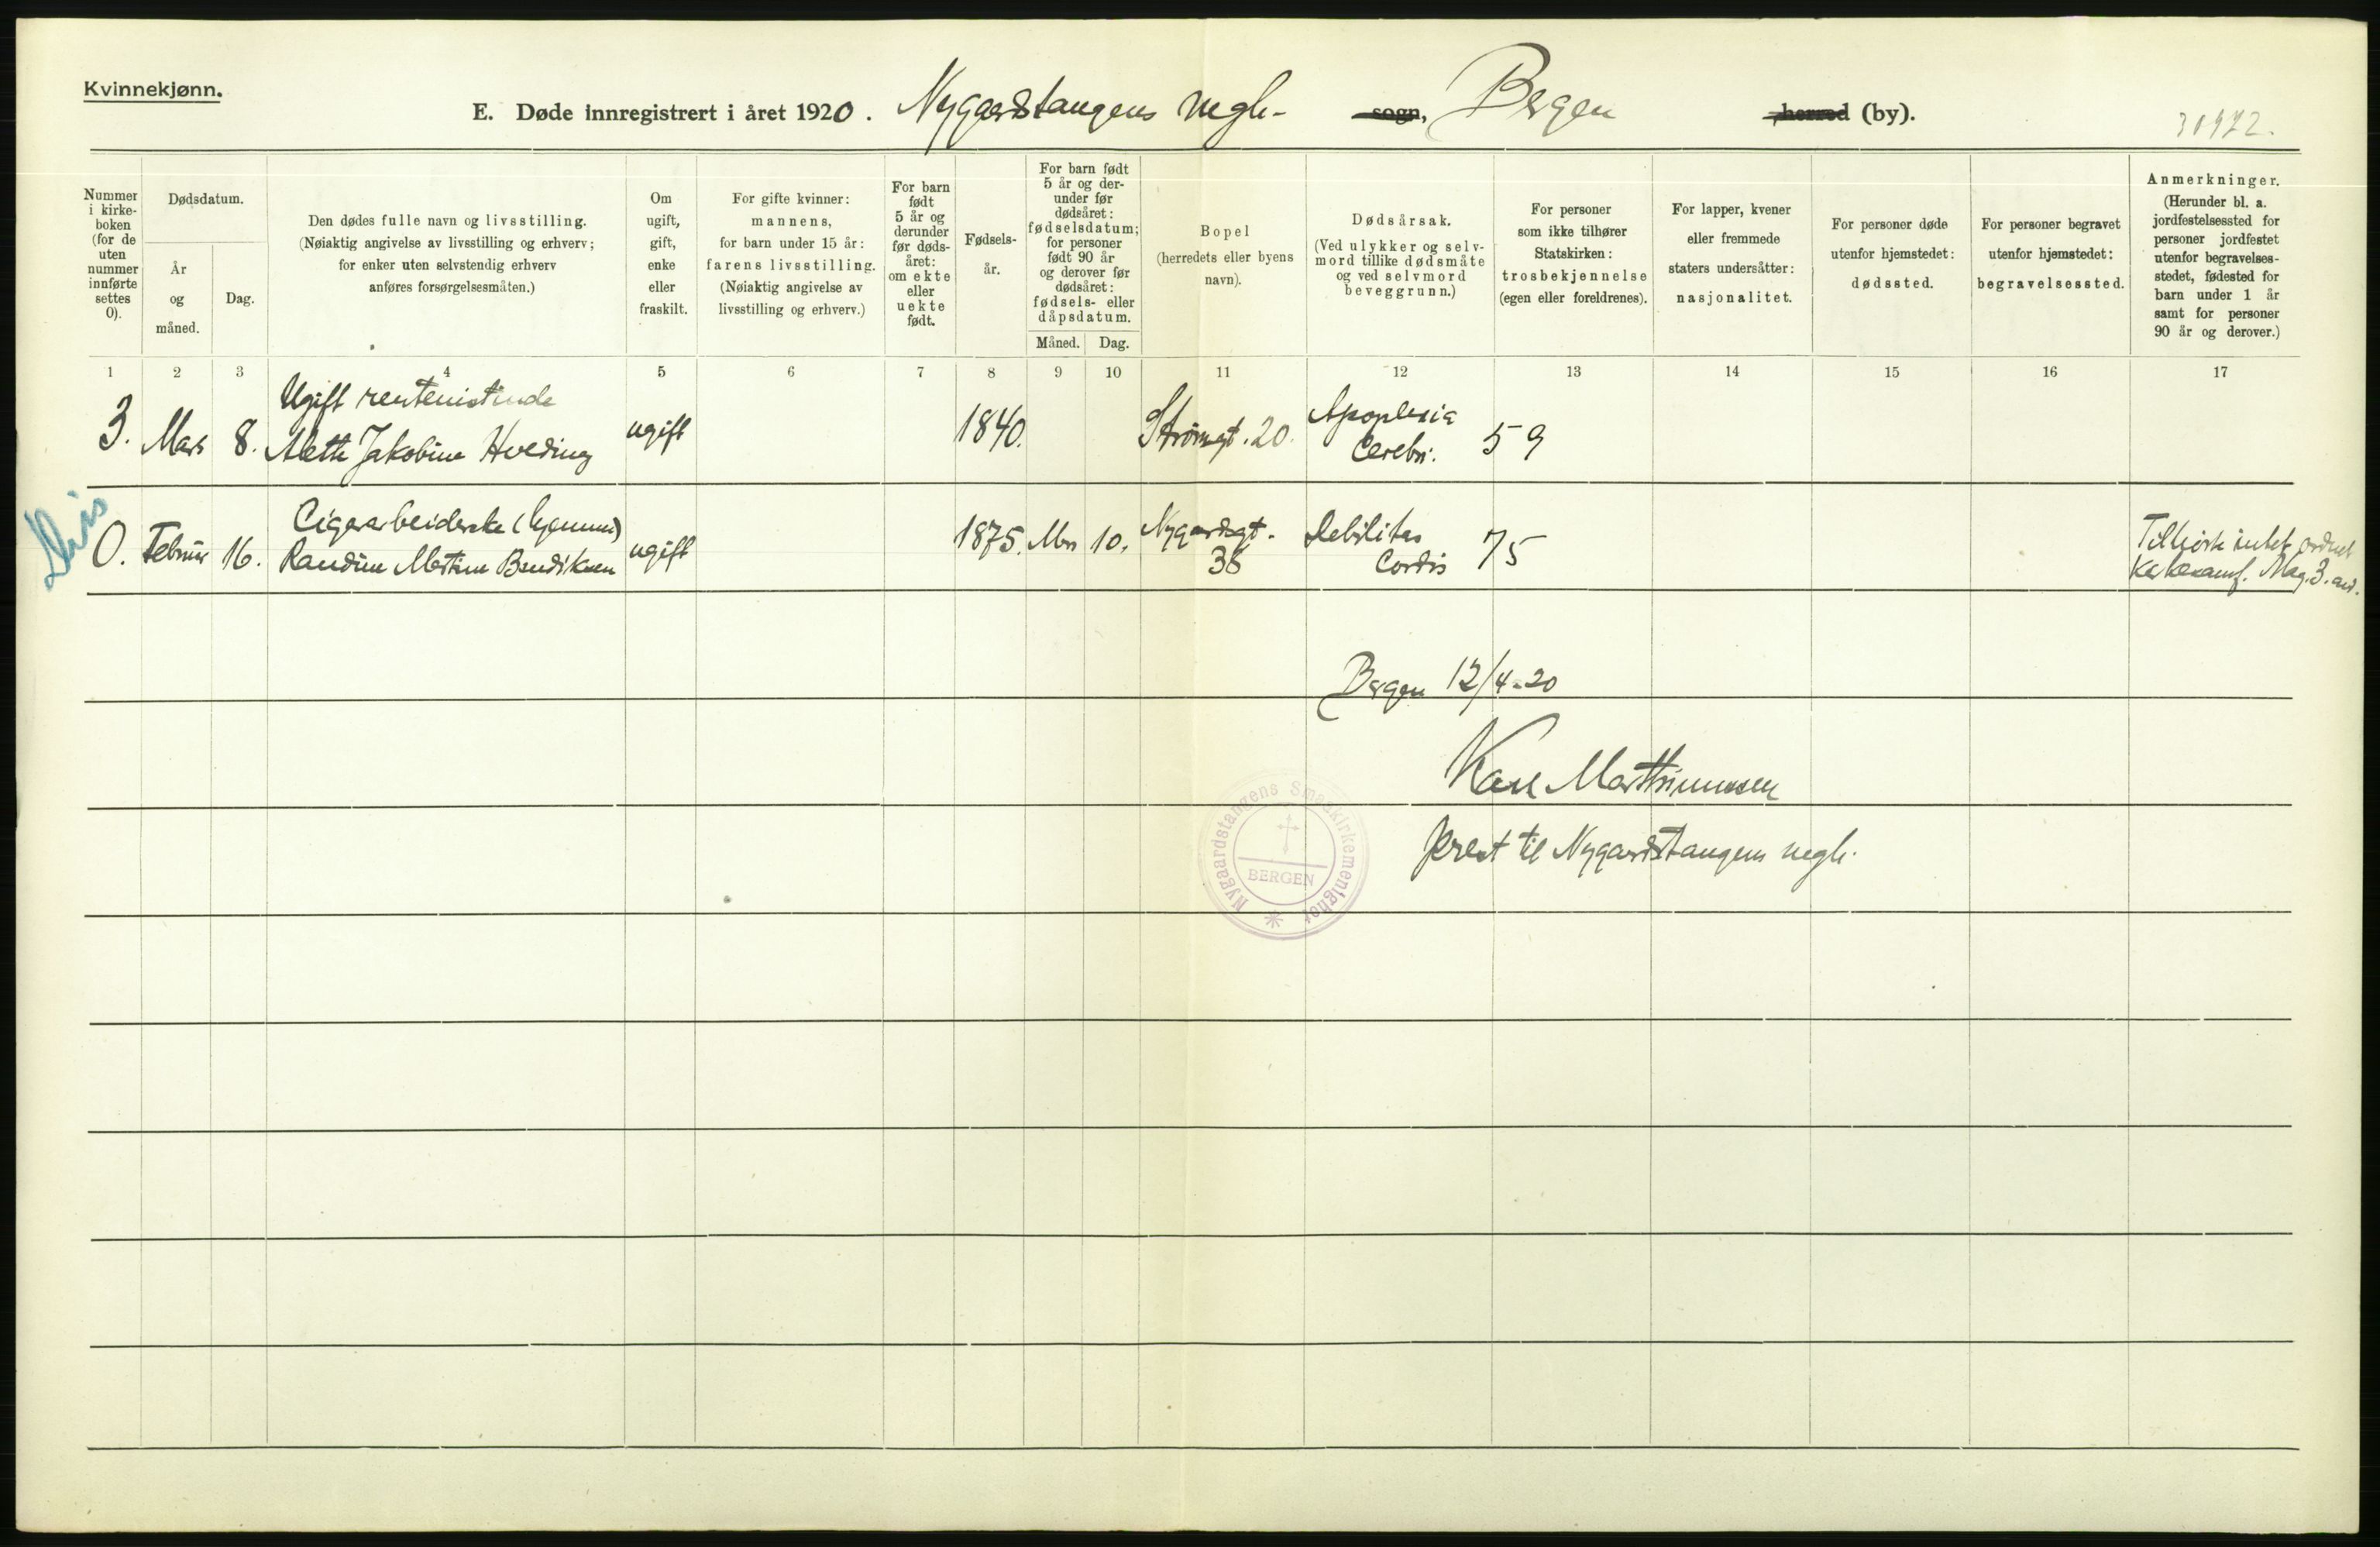 Kvinnekjønn.
E. Døde innregistrert i året 1920. Nygaardstangens megh- sogn, Bergen herred (by).
Nummer i kirke-boken (for de uten nummer innførte settes 0).
Dødsdatum.
År og måned.
Dag.
Den dødes fulle navn og livsstilling.
(Nøiaktig angivelse av livsstilling og erhverv;
for enker uten selvstendig erhverv
anføres forsørgelsesmåten.)
Om
ugift,
gift,
enke
eller
fraskilt.
For gifte kvinner:
mannens,
for barn under 15 år:
farens livsstilling.
(Nøiaktig angivelse av
livsstilling og erhverv.)
For barn
født
5 år og
derunder
før døds-
året:
om ekte
eller
uekte
født.
Fødsels-
år.
For barn født
5 år og der-
under før
dødsåret:
fødselsdatum;
for personer
født 90 år
og derover før
dødsåret:
fødsels- eller
dåpsdatum.
Måned. Dag.
Bopel
(herredets eller byens
navn).
Dødsårsak.
(Ved ulykker og selv-
mord tillike dødsmåte
og ved selvmord
beveggrunn.)
For personer
som ikke tilhører
Statskirken:
trosbekjennelse
(egen eller foreldrenes).
For lapper, kvener
eller fremmede
staters undersåtter:
nasjonalitet.
For personer døde
utenfor hjemstedet:
dødssted.
For personer begravet
utenfor hjemstedet:
begravelsessted.
Anmerkninger.
(Herunder bl. a.
jordfestelsessted for
personer jordfestet
utenfor begravelses-
stedet, fødested for
barn under 1 år
samt for personer
90 år og derover.)
1 2 3 4 5 6 7 8 9 10 11 12 13 14 15 16 17
Ugift rentenistinde
3. Mars 8. Alette Jakobine Hveding ugift 1840. Strømgt. 20. Apoplexia
Cerebri. 59
Cigararbeiderske (hjemme)
0. Februar 16. Randine Martine Bendiksen ugift 1875. Mars 10. Nygaardsgt.
38 Debilitas
Cordis 75
Tilhørte intet ordnet
Kirkesamf.
Bergen 12/4-20
Karl Marthinussen
prest til Nygaardstangens megh.
Nygaardstangens Smaakirkemenighet
BERGEN